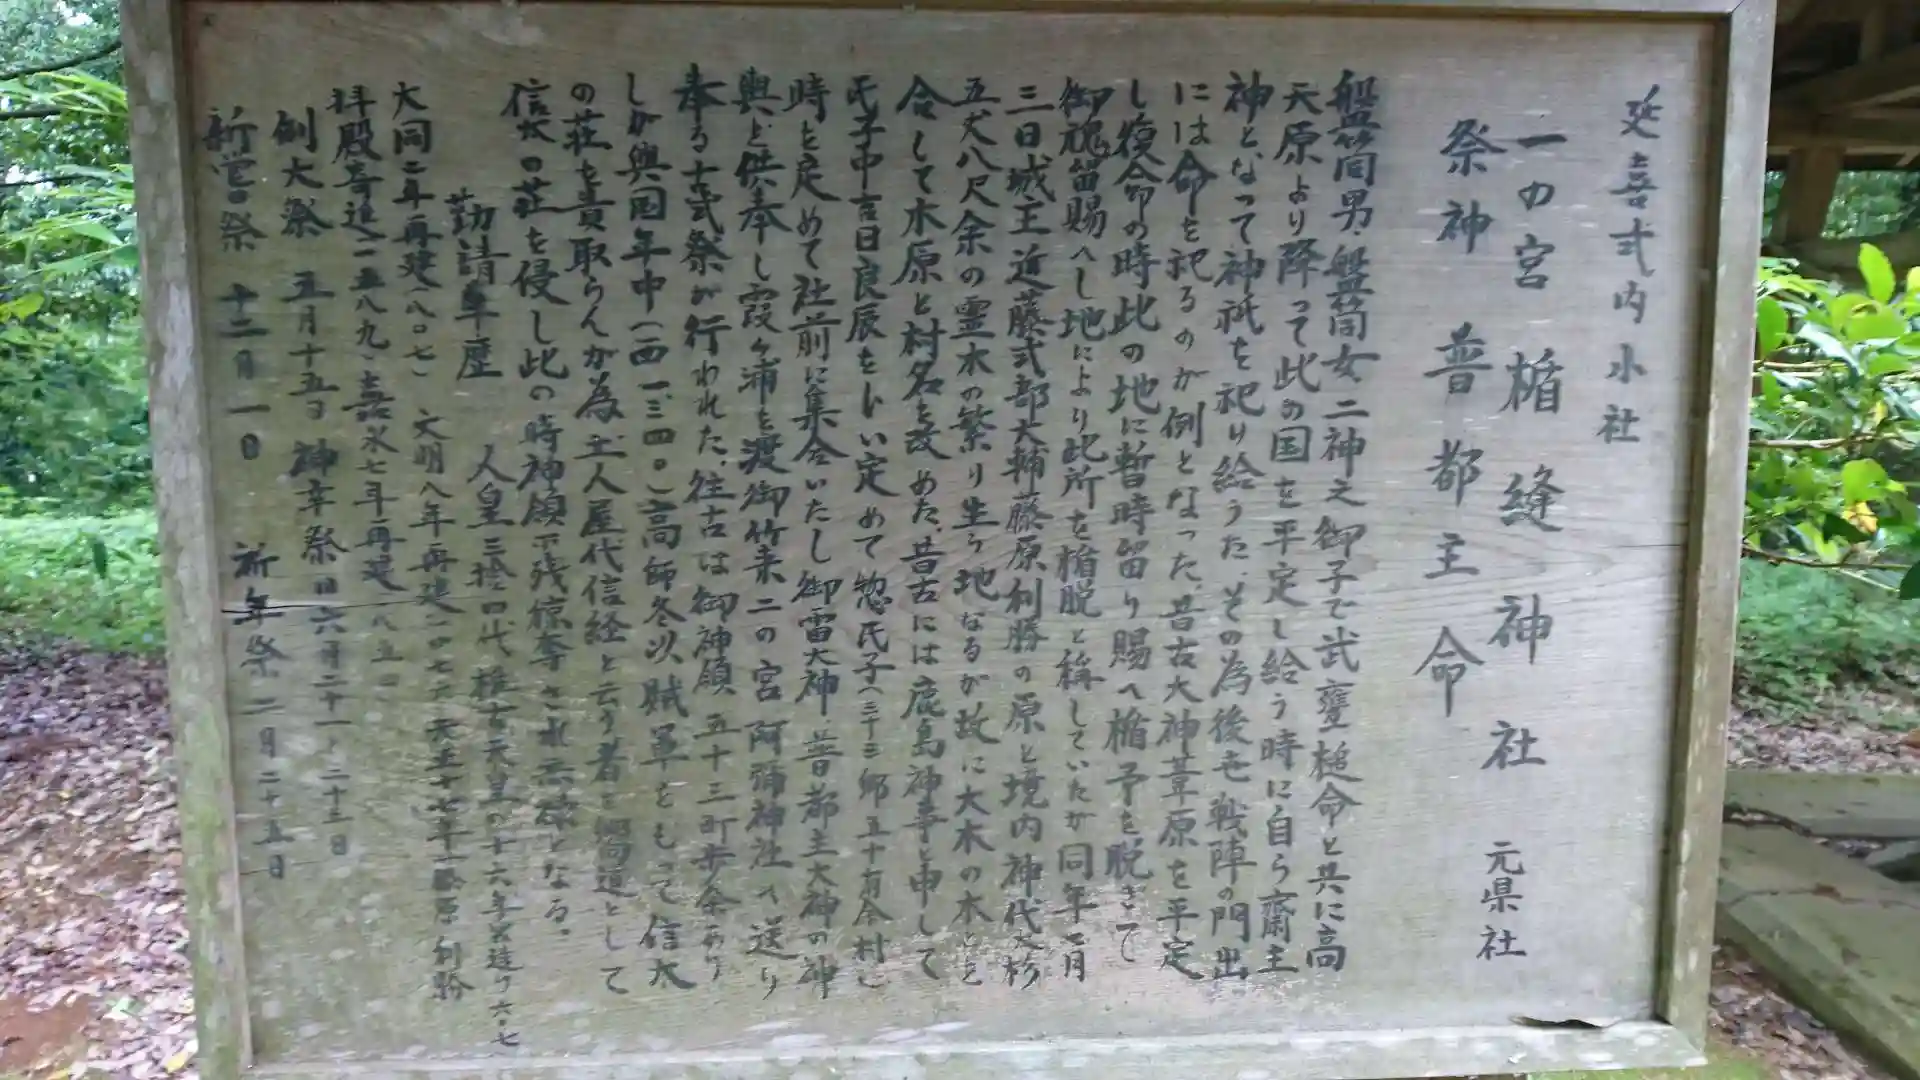 延喜式内小社
一の宮 楯縫神社 元県社
祭神 普都主命
盤筒男、盤筒女、二神之御子で武甕槌命と共に高
天原より降って此の国を平定し給う時に自ら齋主
神となって神祇を祀り給うた、その為後も戦陣の門出
には命を祀るのが例となった、昔古大神葦原を平定
し復命の時此の地に暫時留り賜へ楯予を脱ぎて
御魂留賜へし地により此所を楯脱と稱していたが同年七月
三日城主近藤式部大輔藤原利勝の原と境内神代大杉
五丈八尺余の霊木の繁り生う地なるが故に大木の木とを
合して木原と村名を改めた、昔古には鹿島神事と申して
氏子中吉日良辰をトい定めて惣氏子(三十三郷五十有余村)
時を定めて社前に集合いたし御雷大神、普都主大神の神
輿ど供奉し霞ヶ浦を渡御竹来二の宮 阿彌神社へ送り
奉る古式祭が行われた、往古は御神領 五十三町歩余あり
しが興国年中(一四一、三四〇)高師冬以賊軍をもって信太
の荘を責取らんが為、土人屋代信経と云う者を嚮道として
信太の荘を侵し此の時神領下残掠奪され云碑となる。
勧請年歴 人皇三拾四代 推古天皇の十六年宮造り六〇七
大同二年再建(八〇七) 文明八年再建一四七六 天正十七年藤原利勝
拝殿寄進一五八九、嘉永七年再建一八五四
例大祭 五月十五日 神幸祭 旧六月二十一、二十三日
新嘗祭 十二月一日 祈年祭 二月二十五日